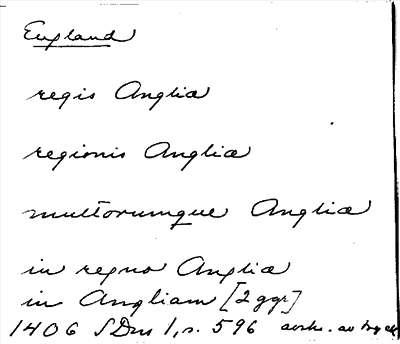 England
regis Angliæ
regionis Angliæ
multorumque Angliæ
in regno Angliæ
in Angliam [2 ggr]
1406 SDns 1, s. 596 avskr. av